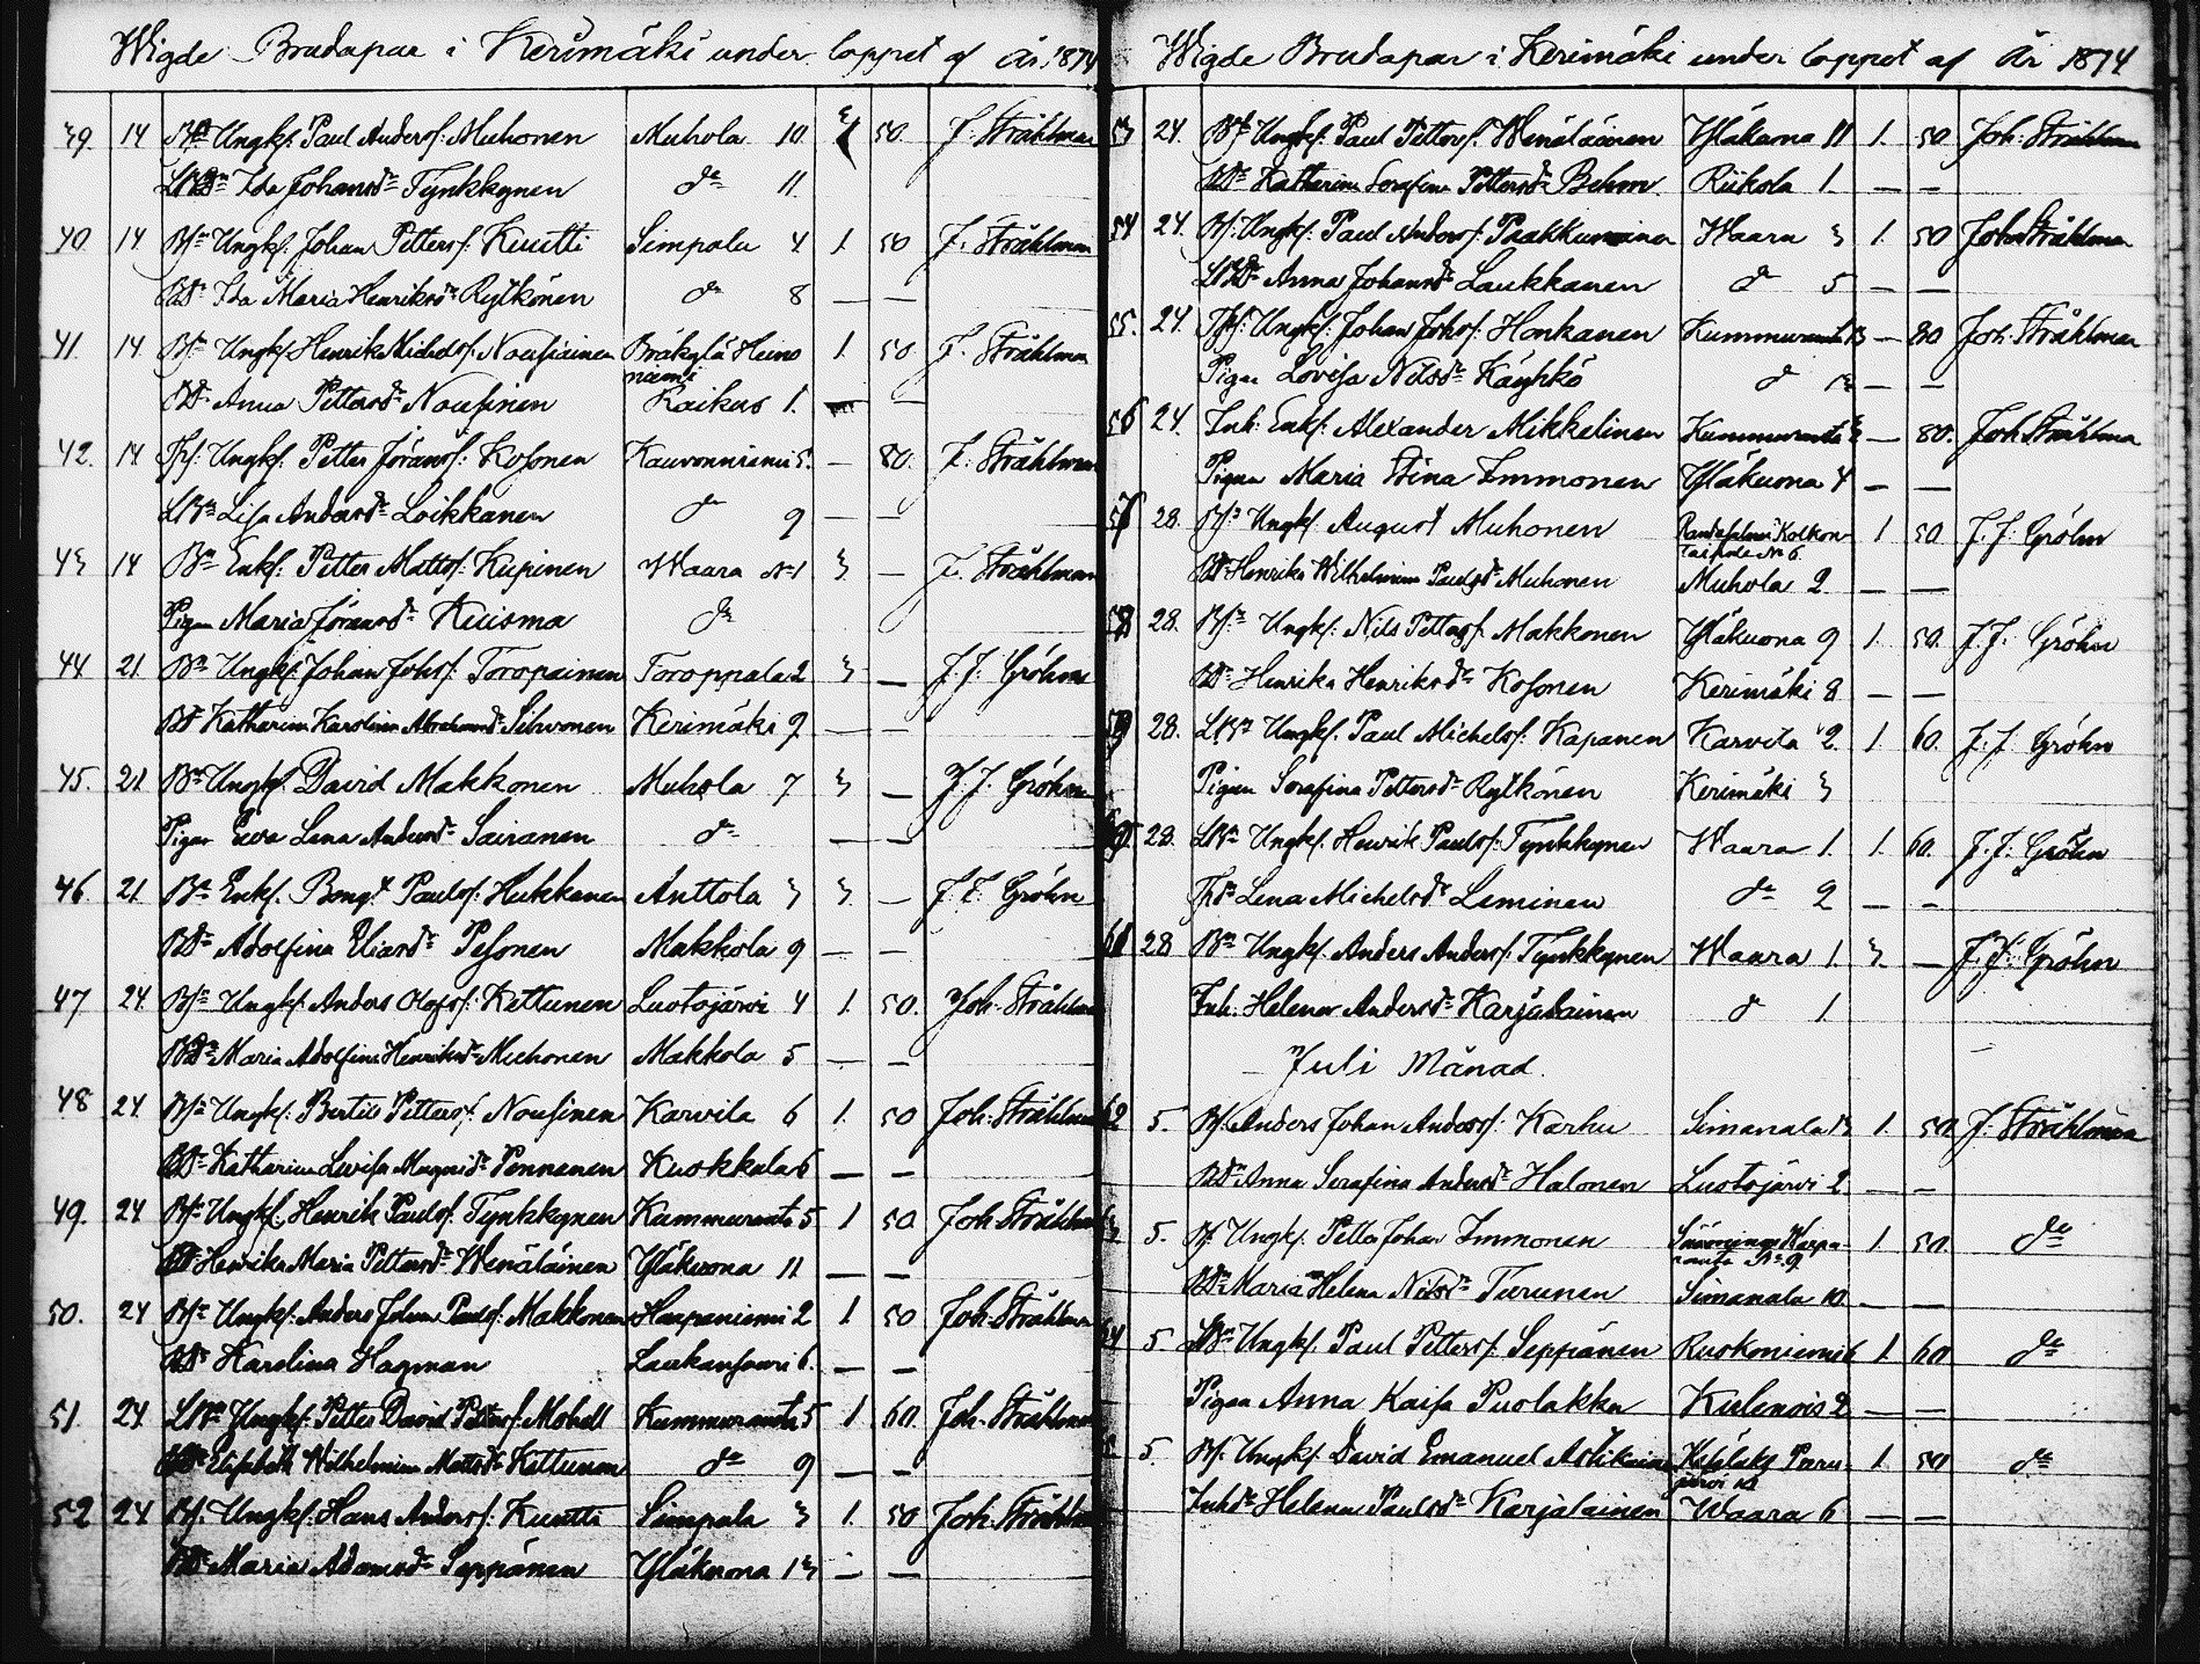 Wigde Brudapar i Kerimäki under loppet af År 1874
39. 14 Bs Ungk. Paul Anders. Muhonen Muhola 10. 50. J. Stråhlman
Ida Johansdr Tynkkynen do 11.
40. 14 Bsn Ungk. Johan Petters. Kuutti Simpala 4 1. 50 J. Stråhlman
BDr Ida Maria Henriksdr Rytkönen do 8 — —
41. 14. Bsn Ungk. Henrik Michels. Nousiainen Bräkylä Heino 1. 50. J. Stråhlman
niemi
BDr Anna Pettersdr Nousinen Raikuo 1. — —
42. 14 Ungk. Petter Görans. Kosonen Kauvonniemi 5. — 80. J. Stråhlman
Lisa Andersdr Loikkanen do 9 — —
43 14 Bn Enkl. Petter Matts. Kupinen Waara No 1 3. — J. Stråhlman
Pigan Maria Göransdr Kuisma do
44 21. Bn Ungk. Johan Johs. Toropainen Toroppala 2 3 — J. J. Gröhn
BDr Katharina Karolina Abrahamsdr Sihvonen Kerimäki 9 — —
45. 21 Bn Ungk. David Makkonen Muhola 7 3 — J. J. Gröhn
Pigan Eeva Lena Andersdr Sairanen do — —
46. 21. Bn Enkl. Bengt Pauls. Hukkanen Anttola 3 3. — J. J. Gröhn
BDr Adolfina Eliasdr Pesonen Makkola 9 — —
47 24. Bsn Ungk. Anders Olofs. Kettunen Luotojärvi 4 1. 50. Joh. Stråhlman
BDr Maria Adolfina Henriksdr Muhonen Makkola 5 — —
48 24. Bsn Ungk. Bertil Petters. Nousinen Karvila 6 1. 50 Joh. Stråhlman
BDr Katharina Lovisa Magnidr Pennanen Kuokkala 6 — —
49. 24 Bsn Ungk. Henrik Pauls. Tynkkynen Kummuranta 5. 1 50. Joh. Stråhlman
BDr Henrika Maria Pettersdr Wenäläinen Yläkuona 11 — —
50. 24 Bsn Ungk. Anders Johan Pauls. Makkonen Haapaniemi 2 1 50 Joh. Stråhlman
BDr Karolina Hagman Laukansaari 6. — —
51. 24 Ungk. Petter David Petters. Mohell Kummuranta 5 1 60. Joh. Stråhlman
Elisabeth Wilhelmina Mattsdr Kettunen do 9 — —
52 24 Bs. Ungk. Hans Anders. Kuutti Simpala 3 1. 50 Joh. Stråhlman
BDr Maria Adamsdr Seppänen Yläkuona 13 — —
Wigde Brudapar i Kerimäki under loppet af År 1874
53 24. Bs Ungk. Paul Petters. Wenäläinen Yläkuona 11 1. 50 Joh. Stråhlman
BDr Katharina Serafina Pettersdr Behm Riikola 1. — —
54 24. Bs. Ungk. Paul Anders. Paakkunainen Waara 3 1. 50 Joh. Stråhlman
Anna Johansdr Laukkanen do 5 — —
55. 24. Ungk. Johan Johs. Honkanen Kummuranta 13 — 80 Joh. Stråhlman
Pigan Lovisa Nilsdr Käyhkö do — —
56 24. Inh. Enkl. Alexander Mikkelinen Kummuranta — 80. Joh. Stråhlman
Pigan Maria Stina Immonen Yläkuona 4 — —
57 28. Bsn Ungk. August Muhonen Randasalmi Kolkon- 1 50 J. J. Gröhn
taipale No 6.
BDr Henrika Wilhelmina Paulsdr Muhonen Muhola 2. — —
58 28. Bsn Ungk. Nils Petters. Makkonen Yläkuona 9 1. 50. J. J. Gröhn
BDr Henrika Henriksdr Kosonen Kerimäki 8 — —
59 28. Ungk. Paul Michels. Kapanen Karvila 2. 1. 60. J. J. Gröhn
Pigan Serafina Pettersdr Rytkönen Kerimäki 3
60. 28. Ungk. Henrik Pauls. Tynkkynen Waara 1. 1. 60. J. J. Gröhn
Lena Michelsdr Leminen do 2 — —
61 28 Bn Ungk. Anders Anders. Tynkkynen Waara 1. 3. — J. J. Gröhn
Inh. Helena Andersdr Karjalainen do 1.
Juli Månad.
62 5. Bs. Anders Johan Anders. Karhu Simanala 13 1. 50. J. Stråhlman
BDr Anna Serafina Andersdr Halonen Luotojärvi 2. — —
63 5. Bs. Ungk. Petter Johan Immonen Sääminge Haapa- 1. 50. do
ranta No 9.
BDr Maria Helena Nilsdr Turunen Simanala 10. — —
64 5. Ungk. Paul Petters. Seppänen Ruokoniemi 6 1. 60 do
Pigan Anna Kaisa Puolakka Kulennois 2 — —
5. Bs. Ungk. David Emanuel Asikainen Hesälaks Puru- 1. 50 do
järvi
Inhdr Helena Paulsdr Karjalainen Waara 6 — —